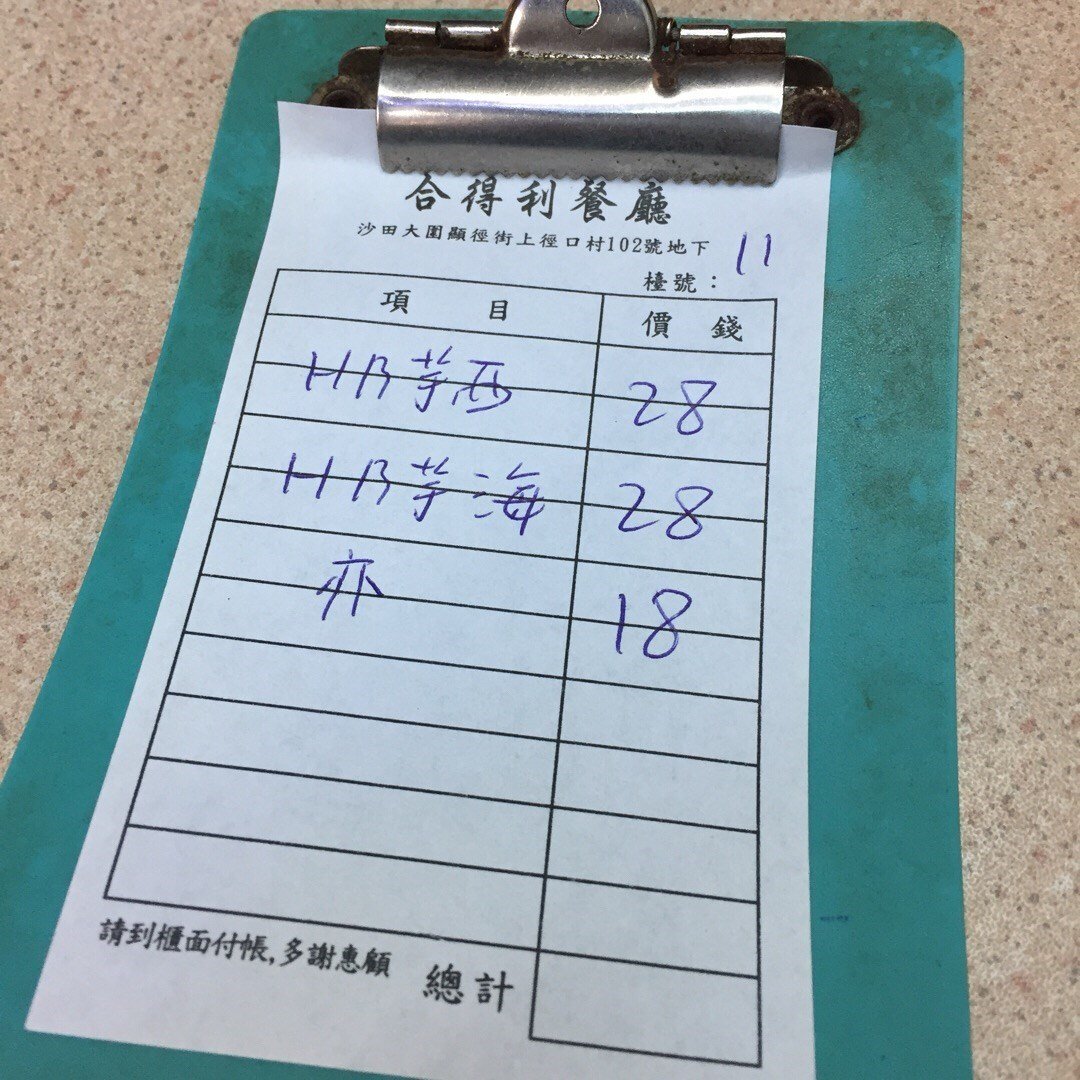 合得利餐廳
沙田大圍顯徑街上徑口村102號地下
檯號： 11
項目 價錢
HB芋西 28
HB芋海 28
亦 18
請到櫃面付帳,多謝惠顧 總計